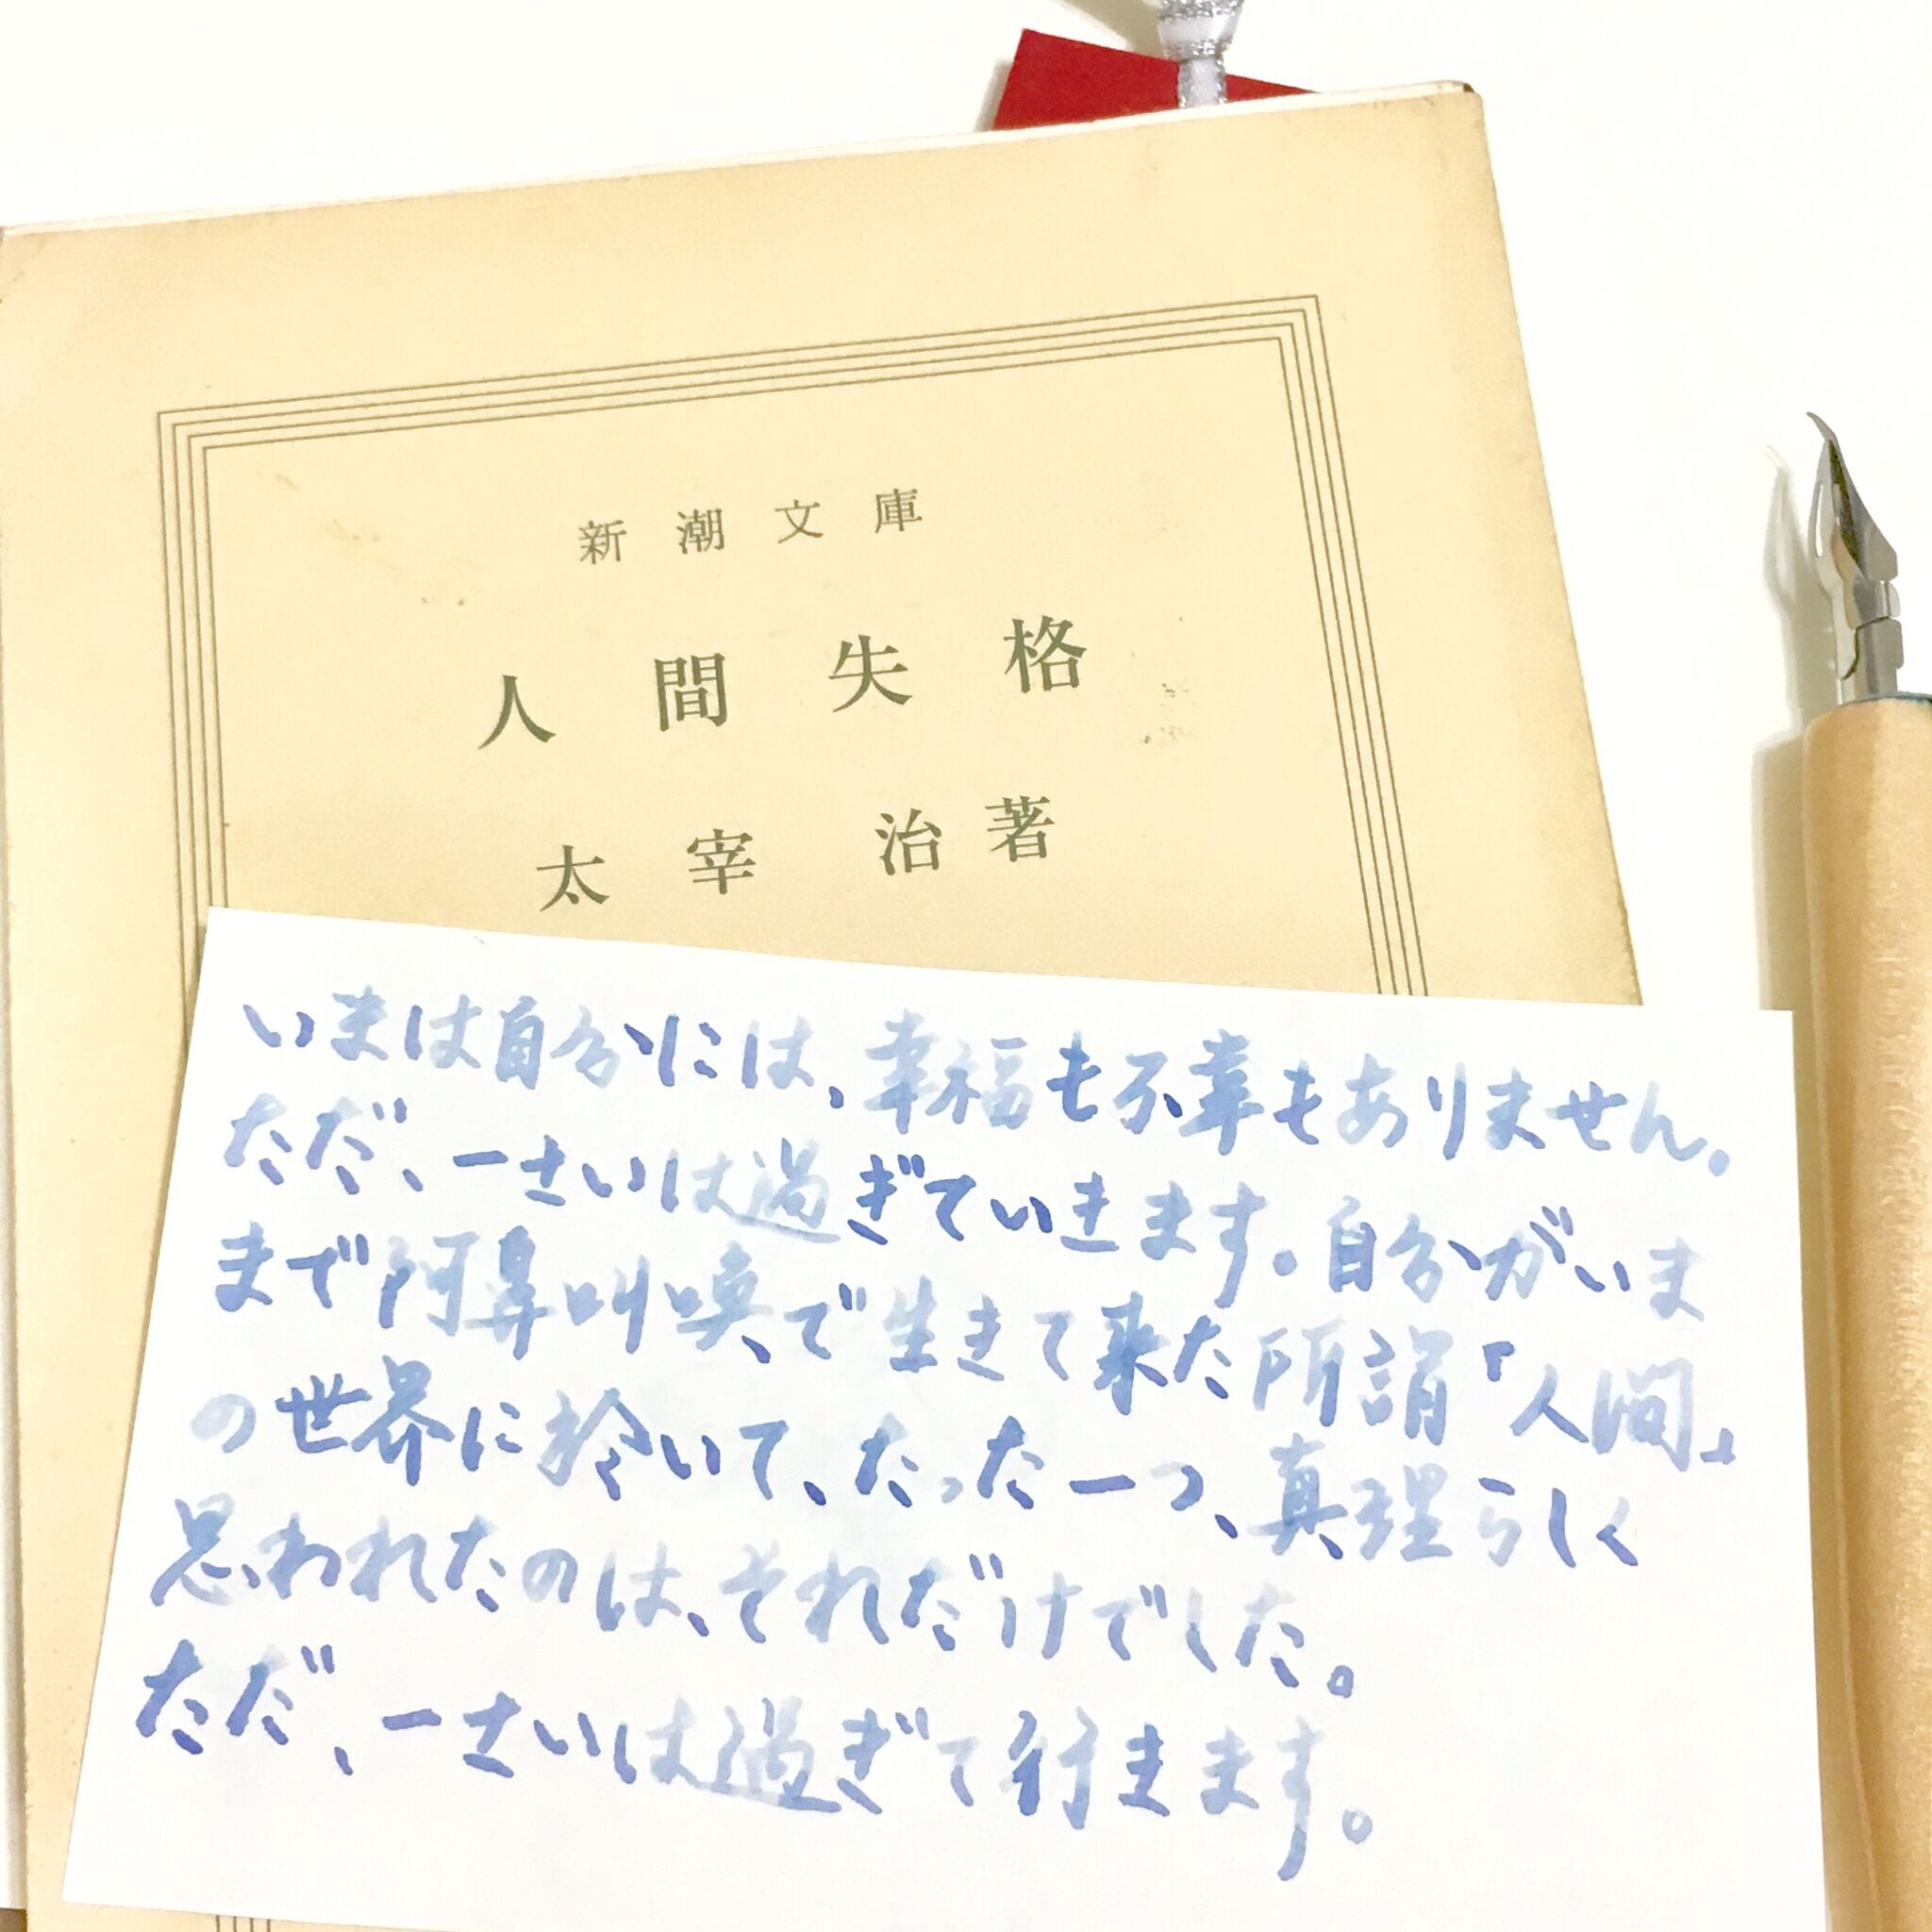 新潮文庫
人間失格
太宰治著
いまは自分には、幸福も不幸もありません。
ただ、一さいは過ぎていきます。自分がいま
まで阿鼻叫喚で生きて来た所謂「人間」
の世界に於いて、たった一つ、真理らしく
思われたのは、それだけでした。
ただ、一さいは過ぎて行きます。